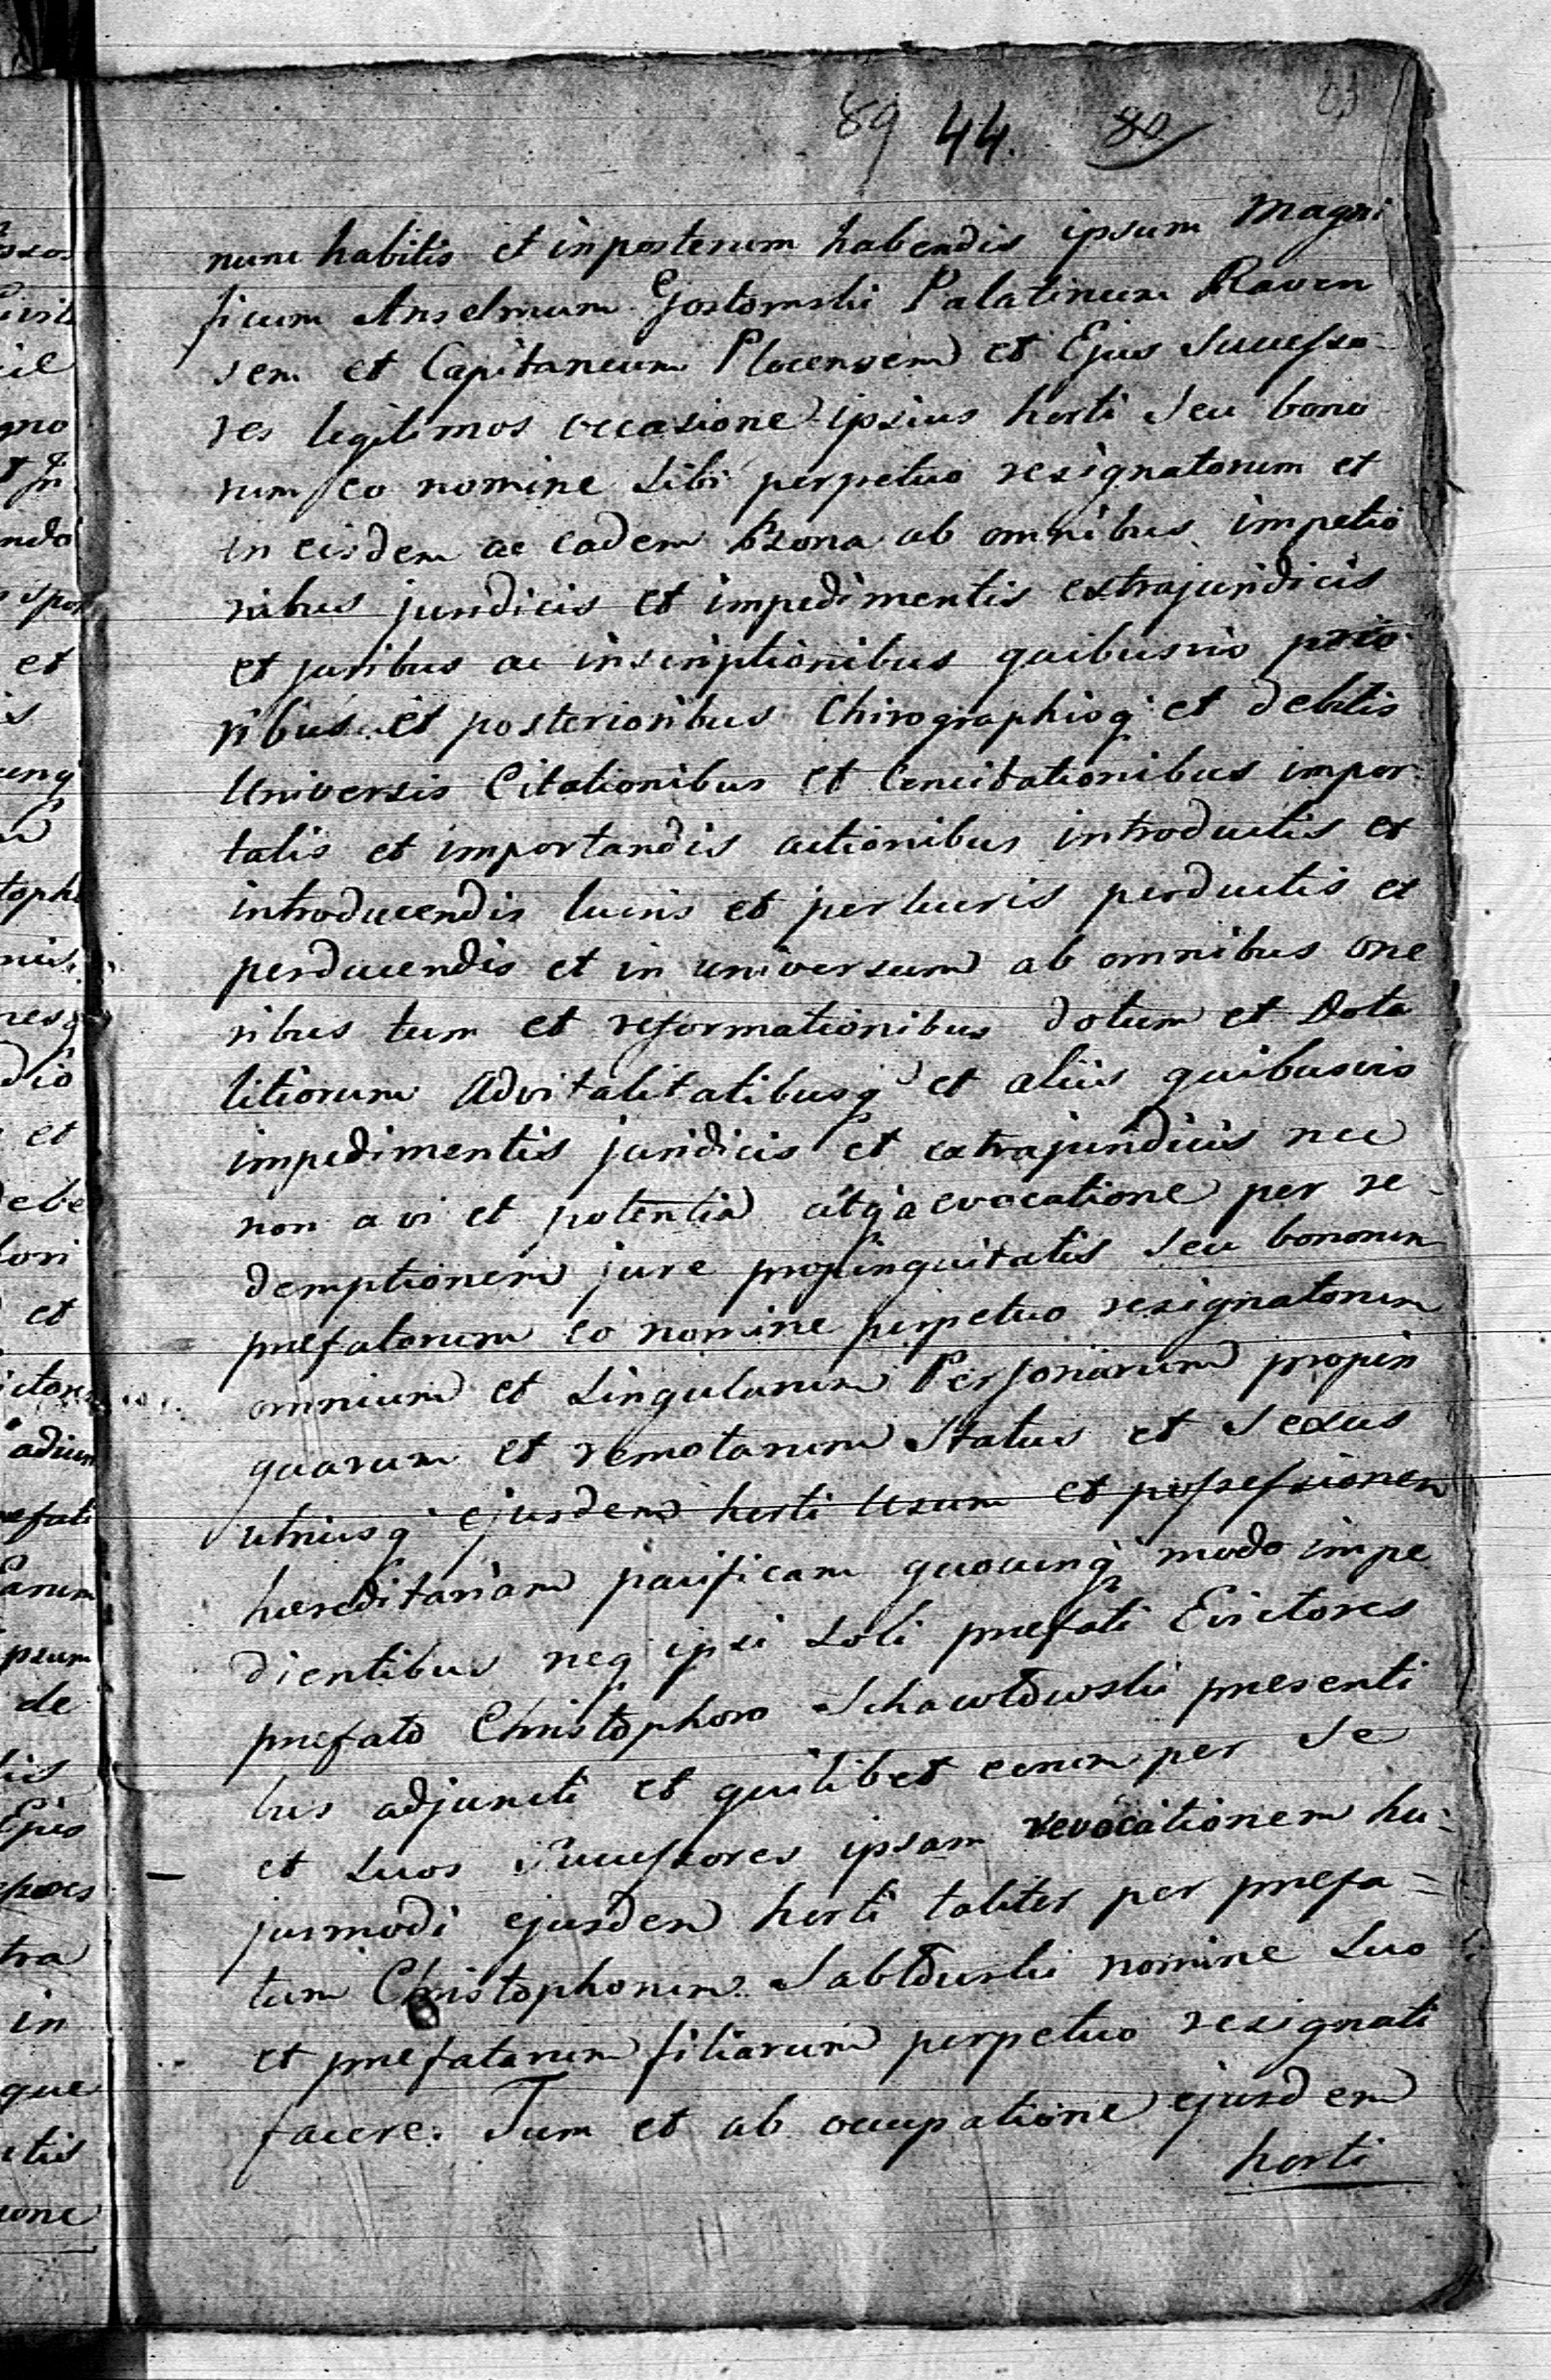 89 44. 80
nunc habitis et inposterum habendis ipsum Magni
ficum Anselmum Gostomski Palatinum Raven
sem et Capitaneum Plocensem et Ejus Successo-
res legitimos occasione ipsius horti seu bono
rum eo nomine sibi perpetuo resignatorum et
in eisdem ac eadem bona ab omnibus impetio
nibus juridicis et impedimentis extrajuridicis
et juribus ac inscriptionibus quibusvis prio
ribus et posterioribus Chirographisq et debitis
Universis Citationibus et Concitationibus impor
tatis et importandis actionibus introductis et
introducendis lucris et perlucris perductis et
perducendis et in universum ab omnibus one
ribus tum et reformationibus dotum et Dota
litiorum Advitalitatibusq et aliis quibusvis
impedimentis juridicis et extrajuridicis nec
non a vi et potentia atq a evocatione per re-
demptionem jure propinquitatis seu bonorum
prefatorum eo nomine perpetuo resignatorum
omnium et singularum Personarum propin
quarum et remotarum Status et Sexus
utriusq ejusdem horti Usum et possessionem
hæreditariam pacificam quocunq modo impe
dientibus neq ipsi soli prefati Evictores
prefato Christophoro Schawłowski presenti
bus adjuncti et quilibet eorum per se
et suos Successores ipsam revocationem hu-
jusmodi ejusdem horti taliter per prefa-
tum Christophorum Sabłowski nomine suo
et prefatarum filiarum perpetuo resignati
facere. Tum et ab occupatione ejusdem
horti